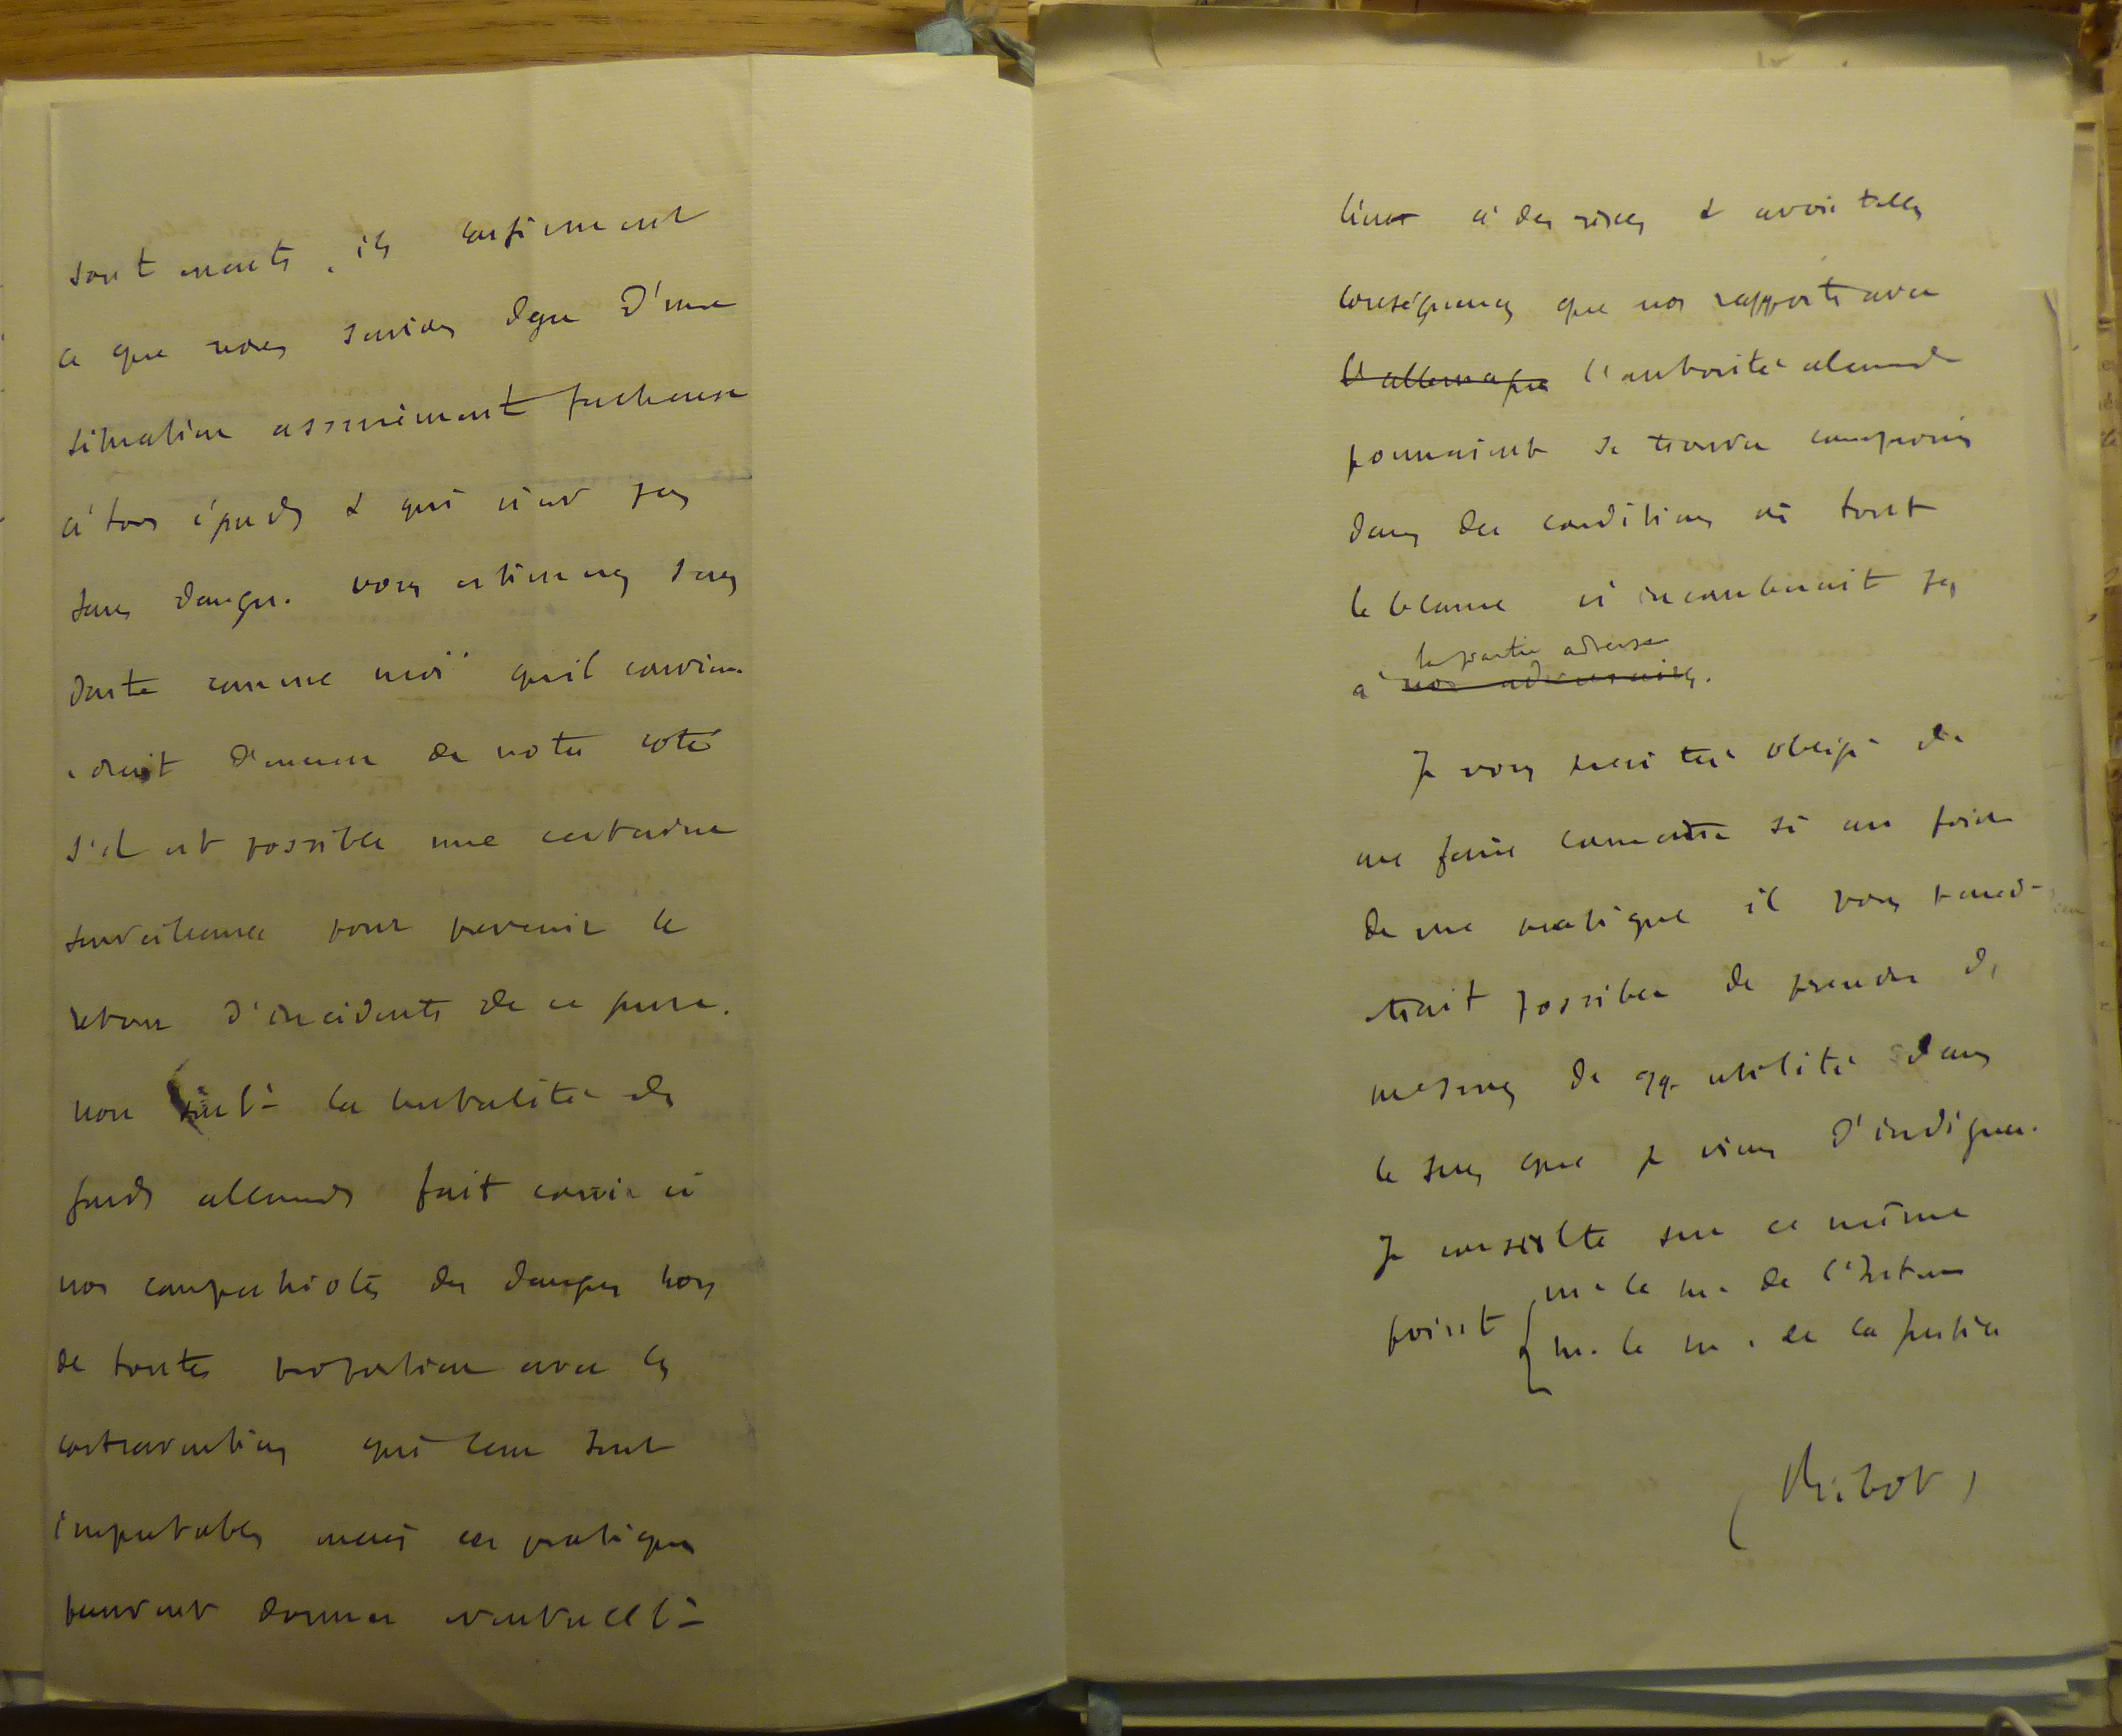 sont exacts, ils confirment
ce que nous savions deja d'une
situation assurément facheuse
à tous égards & qui n'est pas
sans danger. vous estimerez sans
doute comme moi qu'il convien
drait d'exercer de notre coté
s'il est possible une certaine
surveillance pour prevenir le
retour d'incidents de ce genre.
non seult la brutalité des
gardes allemands fait courir à
nos compatriotes des dangers hors
de toute proportion avec les
contraventions qui leur sont
imputables mais ces pratiques
peuvent donner eventuellt
lieu à des rixes & avoir telles
conséquences que nos rapports avec
l'allemagne l'autorité allemande
pourraient se trouver compromis
dans des conditions où tout
le blame n'incomberait pas
la partie adverse
à nos adversaires.
Je vous serai très obligé de
me faire connaitre si au point
de vue pratique il vous parai-
trait possible de prendre des
mesures de qq. utilité dans
le sens que je viens d'indiquer.
Je consulte sur ce même
point
m. le m. de l'Interieur
m. le m. de la justice
(Ribot)